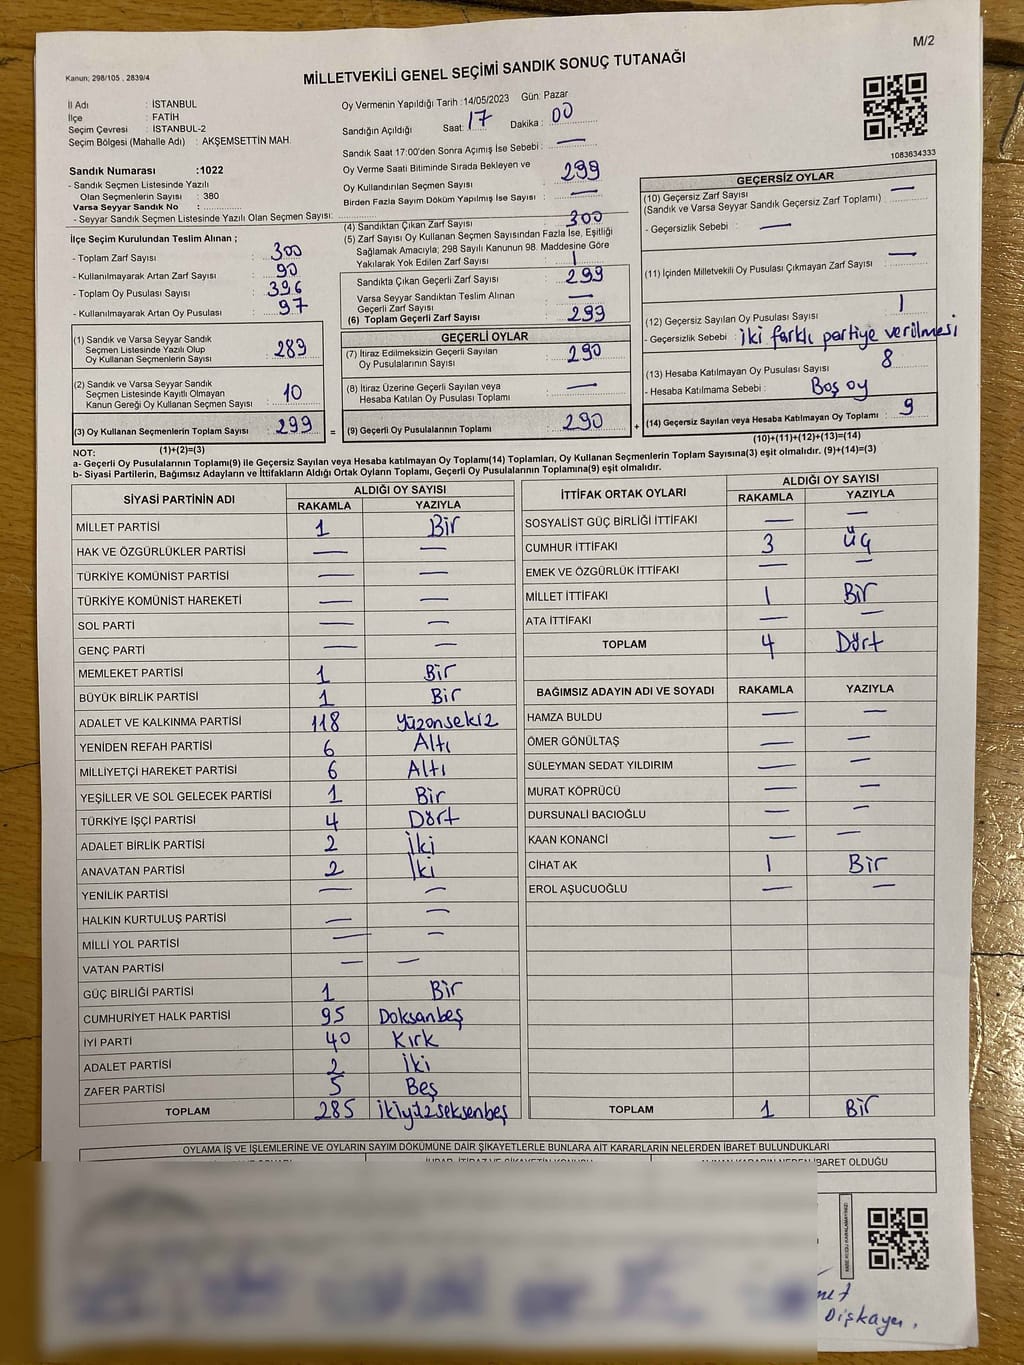 M/2
Kanun; 298/105 , 2839/4
MİLLETVEKİLİ GENEL SEÇİMİ SANDIK SONUÇ TUTANAĞI
İl Adı : İSTANBUL
İlçe : FATİH
Seçim Çevresi : İSTANBUL-2
Seçim Bölgesi (Mahalle Adı) : AKŞEMSETTİN MAH.
Sandık Numarası :1022
- Sandık Seçmen Listesinde Yazılı
Olan Seçmenlerin Sayısı : 380
Varsa Seyyar Sandık No :
- Seyyar Sandık Seçmen Listesinde Yazılı Olan Seçmen Sayısı:
Oy Vermenin Yapıldığı Tarih :14/05/2023 Gün: Pazar
Sandığın Açıldığı Saat: 17 Dakika : 00
Sandık Saat 17:00'den Sonra Açımış İse Sebebi : —
Oy Verme Saati Bitiminde Sırada Bekleyen ve
Oy Kullandırılan Seçmen Sayısı : 299
Birden Fazla Sayım Döküm Yapılmış İse Sayısı : —
1083634333
İlçe Seçim Kurulundan Teslim Alınan ;
- Toplam Zarf Sayısı : 300
- Kullanılmayarak Artan Zarf Sayısı : 90
- Toplam Oy Pusulası Sayısı : 396
- Kullanılmayarak Artan Oy Pusulası : 97
(1) Sandık ve Varsa Seyyar Sandık
Seçmen Listesinde Yazılı Olup
Oy Kullanan Seçmenlerin Sayısı : 289
(2) Sandık ve Varsa Seyyar Sandık
Seçmen Listesinde Kayıtlı Olmayan
Kanun Gereği Oy Kullanan Seçmen Sayısı : 10
(3) Oy Kullanan Seçmenlerin Toplam Sayısı : 299
(1)+(2)=(3)
(4) Sandıktan Çıkan Zarf Sayısı : 300
(5) Zarf Sayısı Oy Kullanan Seçmen Sayısından Fazla İse, Eşitliği
Sağlamak Amacıyla; 298 Sayılı Kanunun 98. Maddesine Göre
Yakılarak Yok Edilen Zarf Sayısı : 1
Sandıkta Çıkan Geçerli Zarf Sayısı : 299
Varsa Seyyar Sandıktan Teslim Alınan
Geçerli Zarf Sayısı : —
(6) Toplam Geçerli Zarf Sayısı : 299
GEÇERLİ OYLAR
(7) İtiraz Edilmeksizin Geçerli Sayılan
Oy Pusulalarının Sayısı : 290
(8) İtiraz Üzerine Geçerli Sayılan veya
Hesaba Katılan Oy Pusulası Toplamı : —
= (9) Geçerli Oy Pusulalarının Toplamı : 290 +
GEÇERSİZ OYLAR
(10) Geçersiz Zarf Sayısı : —
(Sandık ve Varsa Seyyar Sandık Geçersiz Zarf Toplamı)
- Geçersizlik Sebebi : —
(11) İçinden Milletvekili Oy Pusulası Çıkmayan Zarf Sayısı : —
(12) Geçersiz Sayılan Oy Pusulası Sayısı : 1
- Geçersizlik Sebebi : iki farklı partiye verilmesi
(13) Hesaba Katılmayan Oy Pusulası Sayısı : 8
- Hesaba Katılmama Sebebi : Boş oy
(14) Geçersiz Sayılan veya Hesaba Katılmayan Oy Toplamı : 9
(10)+(11)+(12)+(13)=(14)
NOT:
a- Geçerli Oy Pusulasının Toplamı(9) ile Geçersiz Sayılan veya Hesaba katılmayan Oy Toplamı(14) Toplamları, Oy Kullanan Seçmenlerin Toplam Sayısına(3) eşit olmalıdır. (9)+(14)=(3)
b- Siyasi Partilerin, Bağımsız Adayların ve İttifakların Aldığı Ortak Oyların Toplamı, Geçerli Oy Pusulasının Toplamına(9) eşit olmalıdır.
SİYASİ PARTİNİN ADI ALDIĞI OY SAYISI
RAKAMLA YAZIYLA
MİLLET PARTİSİ 1 Bir
HAK VE ÖZGÜRLÜKLER PARTİSİ — —
TÜRKİYE KOMÜNİST PARTİSİ — —
TÜRKİYE KOMÜNİST HAREKETİ — —
SOL PARTİ — —
GENÇ PARTİ — —
MEMLEKET PARTİSİ 1 Bir
BÜYÜK BİRLİK PARTİSİ 1 Bir
ADALET VE KALKINMA PARTİSİ 118 Yüzonsekiz
YENİDEN REFAH PARTİSİ 6 Altı
MİLLİYETÇİ HAREKET PARTİSİ 6 Altı
YEŞİLLER VE SOL GELECEK PARTİSİ 1 Bir
TÜRKİYE İŞÇİ PARTİSİ 4 Dört
ADALET BİRLİK PARTİSİ 2 İki
ANAVATAN PARTİSİ 2 İki
YENİLİK PARTİSİ — —
HALKIN KURTULUŞ PARTİSİ — —
MİLLİ YOL PARTİSİ — —
VATAN PARTİSİ — —
GÜÇ BİRLİĞİ PARTİSİ 1 Bir
CUMHURİYET HALK PARTİSİ 95 Doksanbeş
İYİ PARTİ 40 Kırk
ADALET PARTİSİ 2 İki
ZAFER PARTİSİ 5 Beş
TOPLAM 285 ikiyüzseksenbeş
İTTİFAK ORTAK OYLARI ALDIĞI OY SAYISI
RAKAMLA YAZIYLA
SOSYALİST GÜÇ BİRLİĞİ İTTİFAKI — —
CUMHUR İTTİFAKI 3 üç
EMEK VE ÖZGÜRLÜK İTTİFAKI — —
MİLLET İTTİFAKI 1 Bir
ATA İTTİFAKI — —
TOPLAM 4 Dört
BAĞIMSIZ ADAYIN ADI VE SOYADI RAKAMLA YAZIYLA
HAMZA BULDU — —
ÖMER GÖNÜLTAŞ — —
SÜLEYMAN SEDAT YILDIRIM — —
MURAT KÖPRÜCÜ — —
DURSUNALİ BACIOĞLU — —
KAAN KONANCİ — —
CİHAT AK 1 Bir
EROL AŞUCUOĞLU — —
TOPLAM 1 Bir
OYLAMA İŞ VE İŞLEMLERİNE VE OYLARIN SAYIM DÖKÜMÜNE DAİR ŞİKAYETLERLE BUNLARA AİT KARARLARIN NELERDEN İBARET BULUNDUKLARI
İBARET OLDUĞU
Dişkaya.